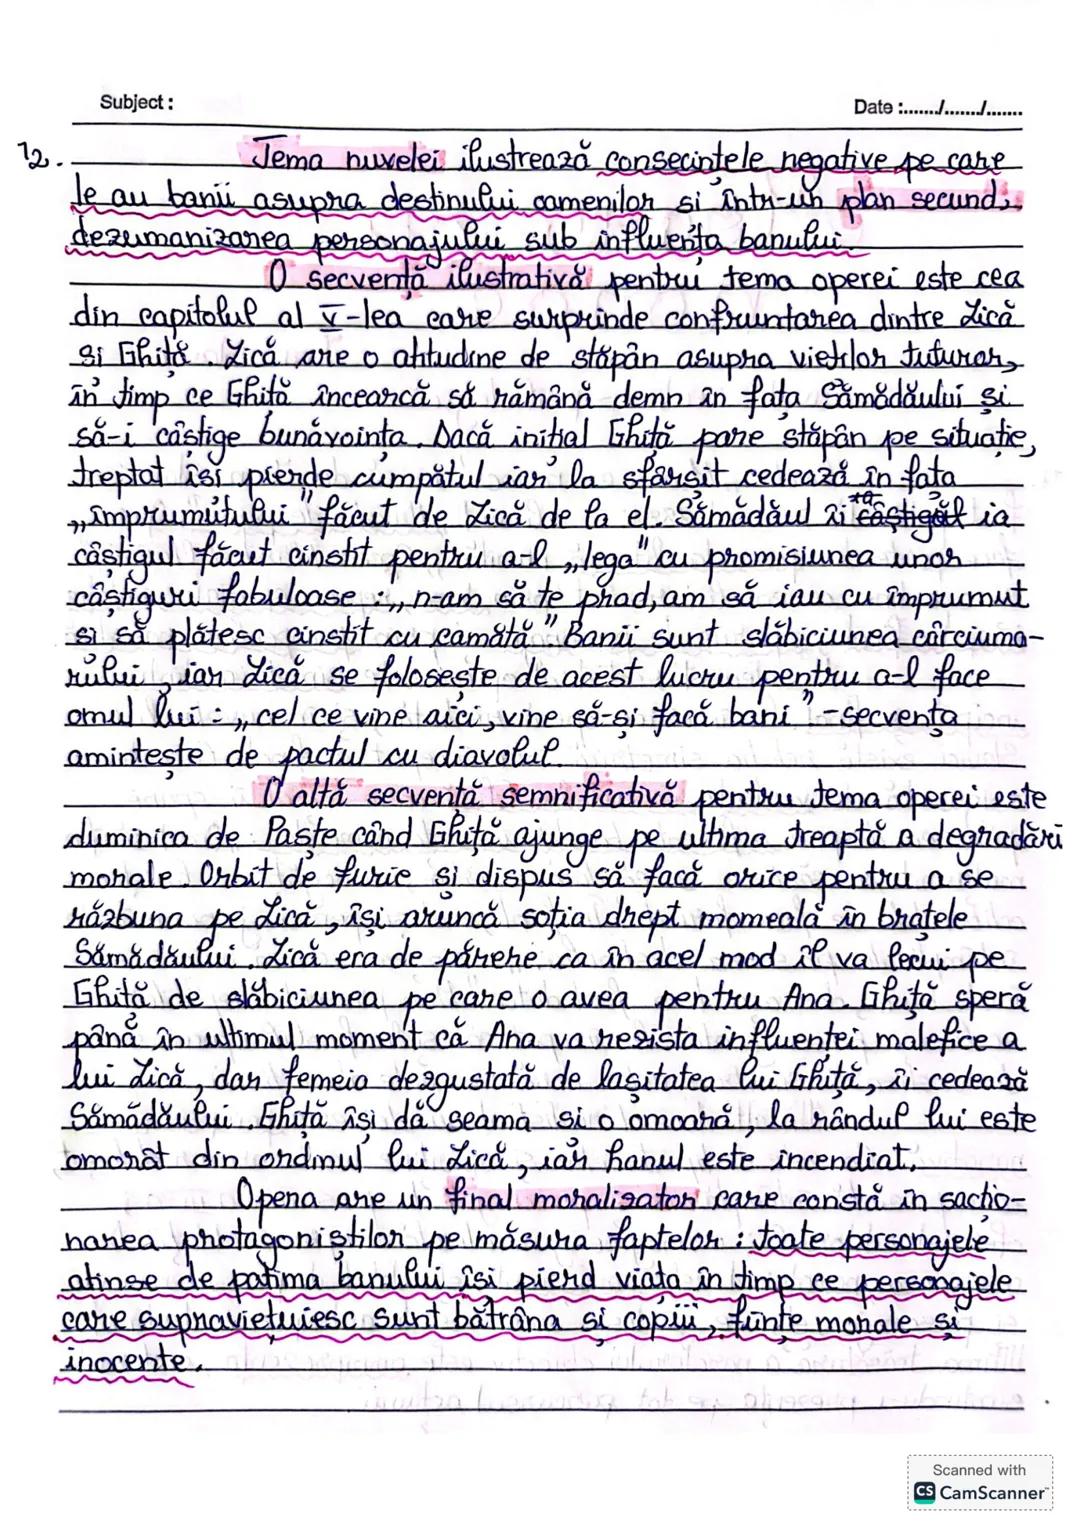 Subject :
Date :......./......./.......
I2. Tema nuvelei ilustrează consecințele negative pe care
le au banii asupra destinului oamenilor și într-un plan secund,
dezumanizarea personajului sub influența banului.
O secvență ilustrativă pentru tema operei este cea
din capitolul al V-lea care surprinde confruntarea dintre Lică
și Ghiță. Lică are o atitudine de stăpân asupra vieților tuturor,
în timp ce Ghiță încearcă să rămână demn în fața Sămădăului și
să-i câștige bunăvoința. Dacă inițial Ghiță pare stăpân pe situație,
treptat își pierde cumpătul iar la sfârșit cedează în fața
„împrumutului" făcut de Lică de la el. Sămădăul îi ia
câștigul făcut cinstit pentru a-l „lega" cu promisiunea unor
câștiguri fabuloase : „n-am să te prad, am să iau cu împrumut
și să plătesc cinstit cu camătă." Banii sunt slăbiciunea cârciuma-
rului, iar Lică se folosește de acest lucru pentru a-l face
omul lui : „cel ce vine aici, vine să-și facă bani" - secvența
amintește de pactul cu diavolul.
O altă secvență semnificativă pentru tema operei este
duminica de Paște când Ghiță ajunge pe ultima treaptă a degradări
morale. Orbit de furie și dispus să facă orice pentru a se
răzbuna pe Lică, își aruncă soția drept momeală în brațele
Sămădăului. Lică era de părere ca în acel mod îl va lecui pe
Ghiță de slăbiciunea pe care o avea pentru Ana. Ghiță speră
până în ultimul moment că Ana va rezista influenței malefice a
lui Lică, dar femeia dezgustată de lașitatea lui Ghiță, îi cedează
Sămădăului. Ghiță își dă seama și o omoară, la rândul lui este
omorât din ordinul lui Lică, iar hanul este incendiat.
Opera are un final moralizator care constă în sacțio-
narea protagoniștilor pe măsura faptelor : toate personajele
atinse de patima banului își pierd viața în timp ce personajele
care supraviețuiesc sunt bătrâna și copiii, ființe morale și
inocente.
Scanned with
CS CamScanner